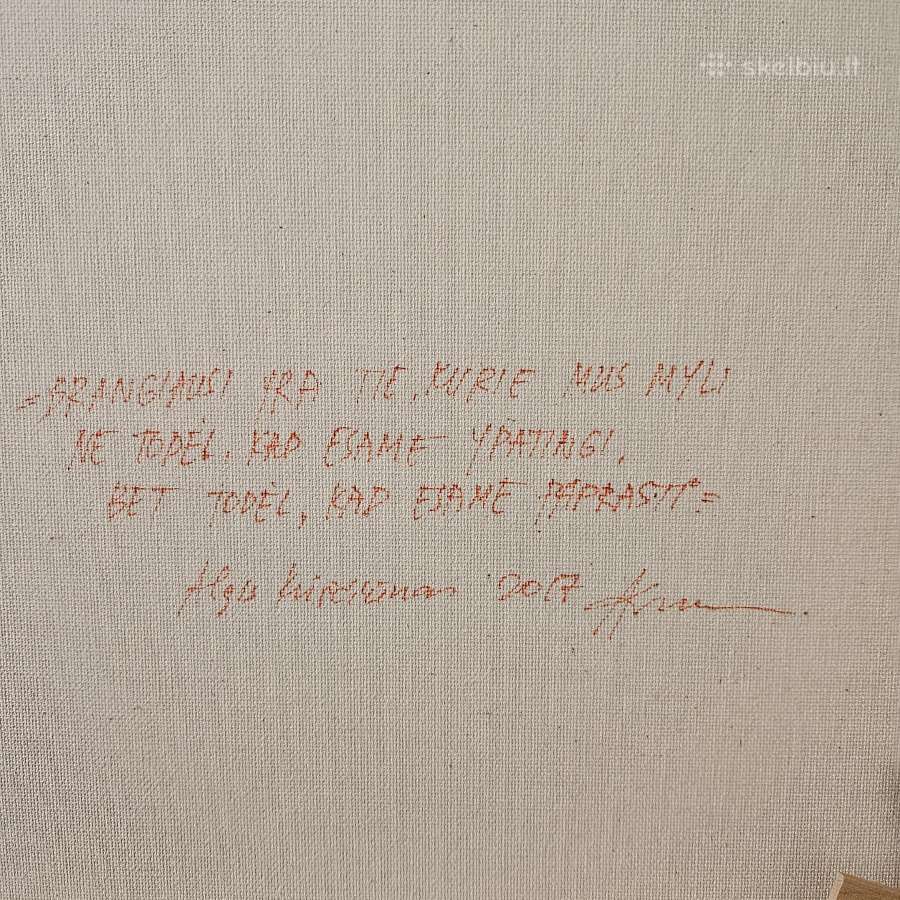 skelbiu.lt
=BRANGIAUSI YRA TIE, KURIE MUS MYLI
NE TODĖL, KAD ESAME YPATINGI,
BET TODĖL, KAD ESAME PAPRASTI"=
2017